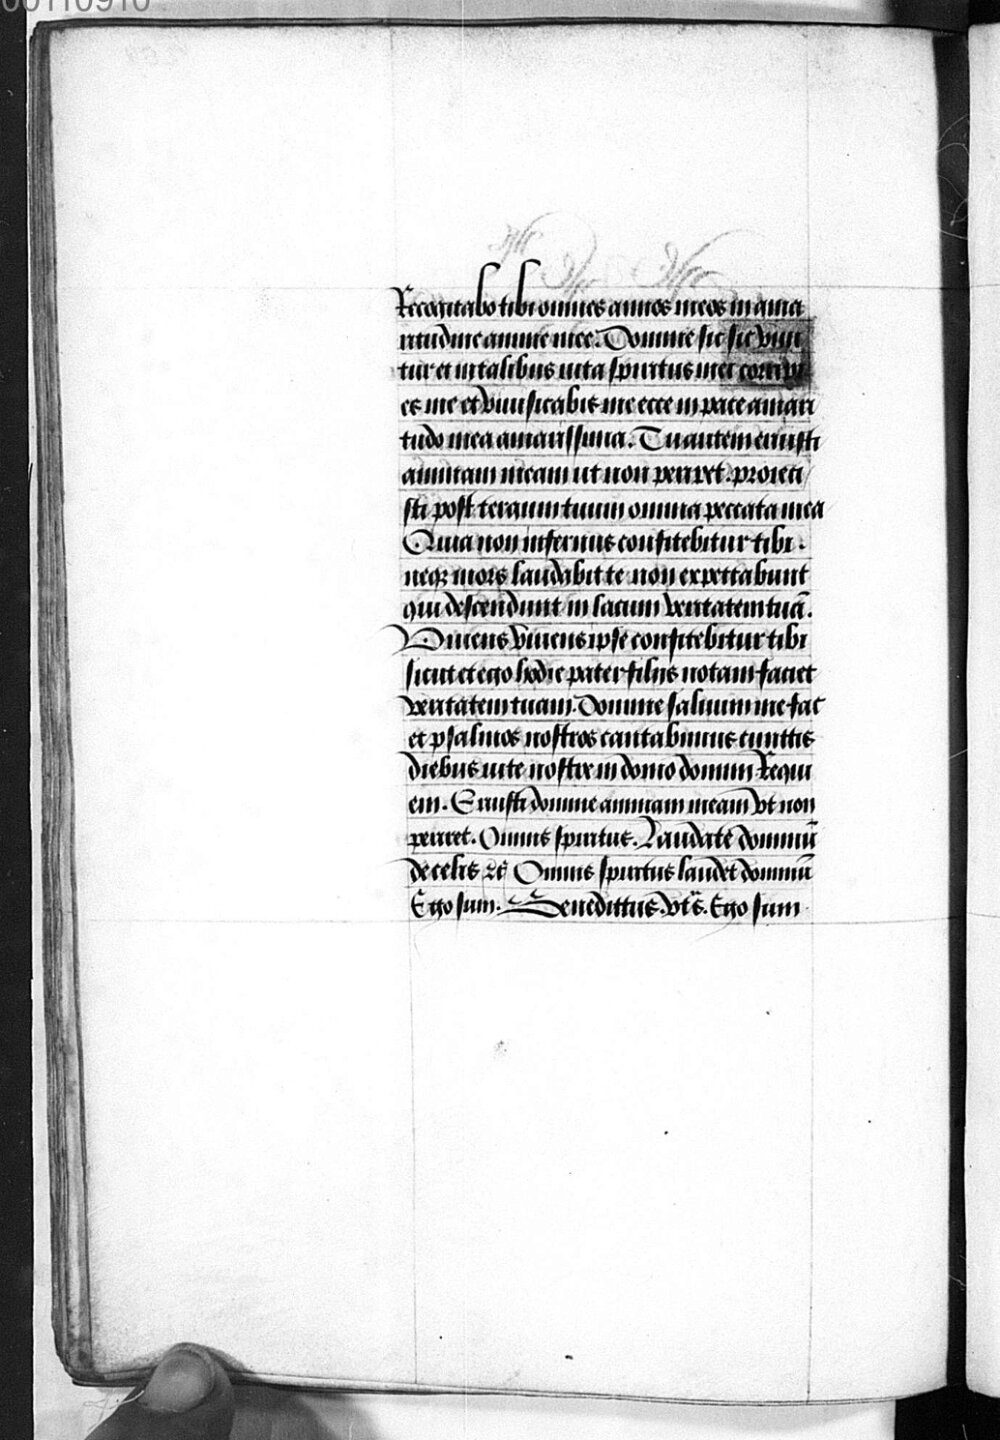 00110910
Recogitabo tibi omnes annos meos in ama
ritudine anime mee. Domine sic sic vivi
tur et in talibus vita spiritus mei corripi
es me et vivificabis me ecce in pace amari
tudo mea amarissima. Tu autem eruisti
animam meam ut non periret. proieci
sti post tergum tuum omnia peccata mea
Quia non infernus confitebitur tibi.
neq mors laudabit te non expectabunt
qui descendunt in lacum veritatem tuā.
Vivens vivens ipse confitebitur tibi
sicut et ego hodie pater filiis notam faciet
veritatem tuam. Domine salvum me fac
et psalmos nostros cantabimus cunctis
diebus vite nostre in domo domini Requi
em. Eruisti domine animam meam vt non
periret. Omnis spiritus. Laudate dominū
de celis Omnis spiritus laudet dominū
Ego sum. Benedictus. Ego sum